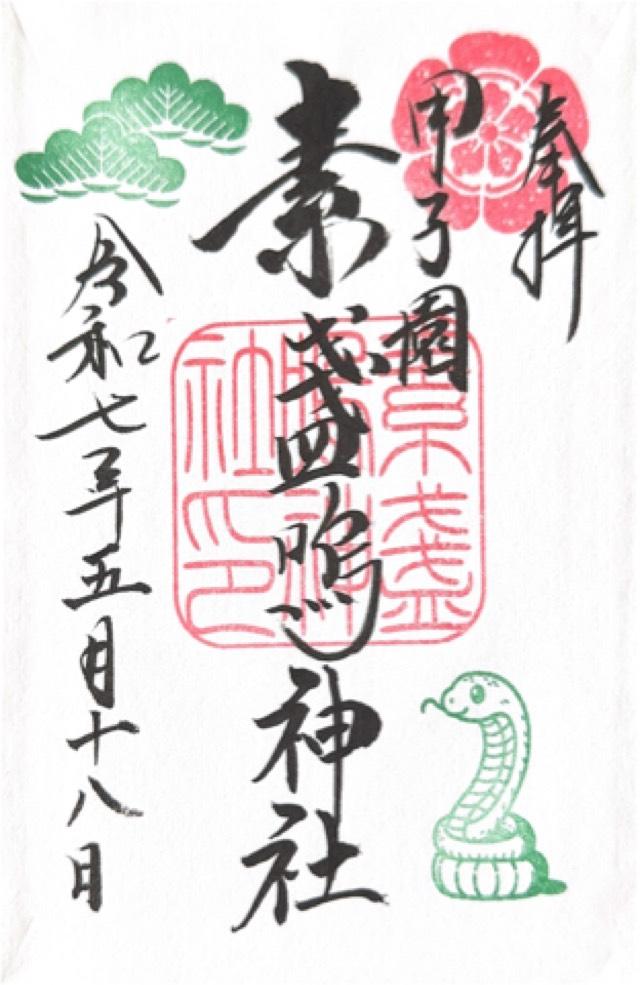 奉拝
甲子園
素盞嗚神社
令和七年五月十八日
素盞
嗚神
社印